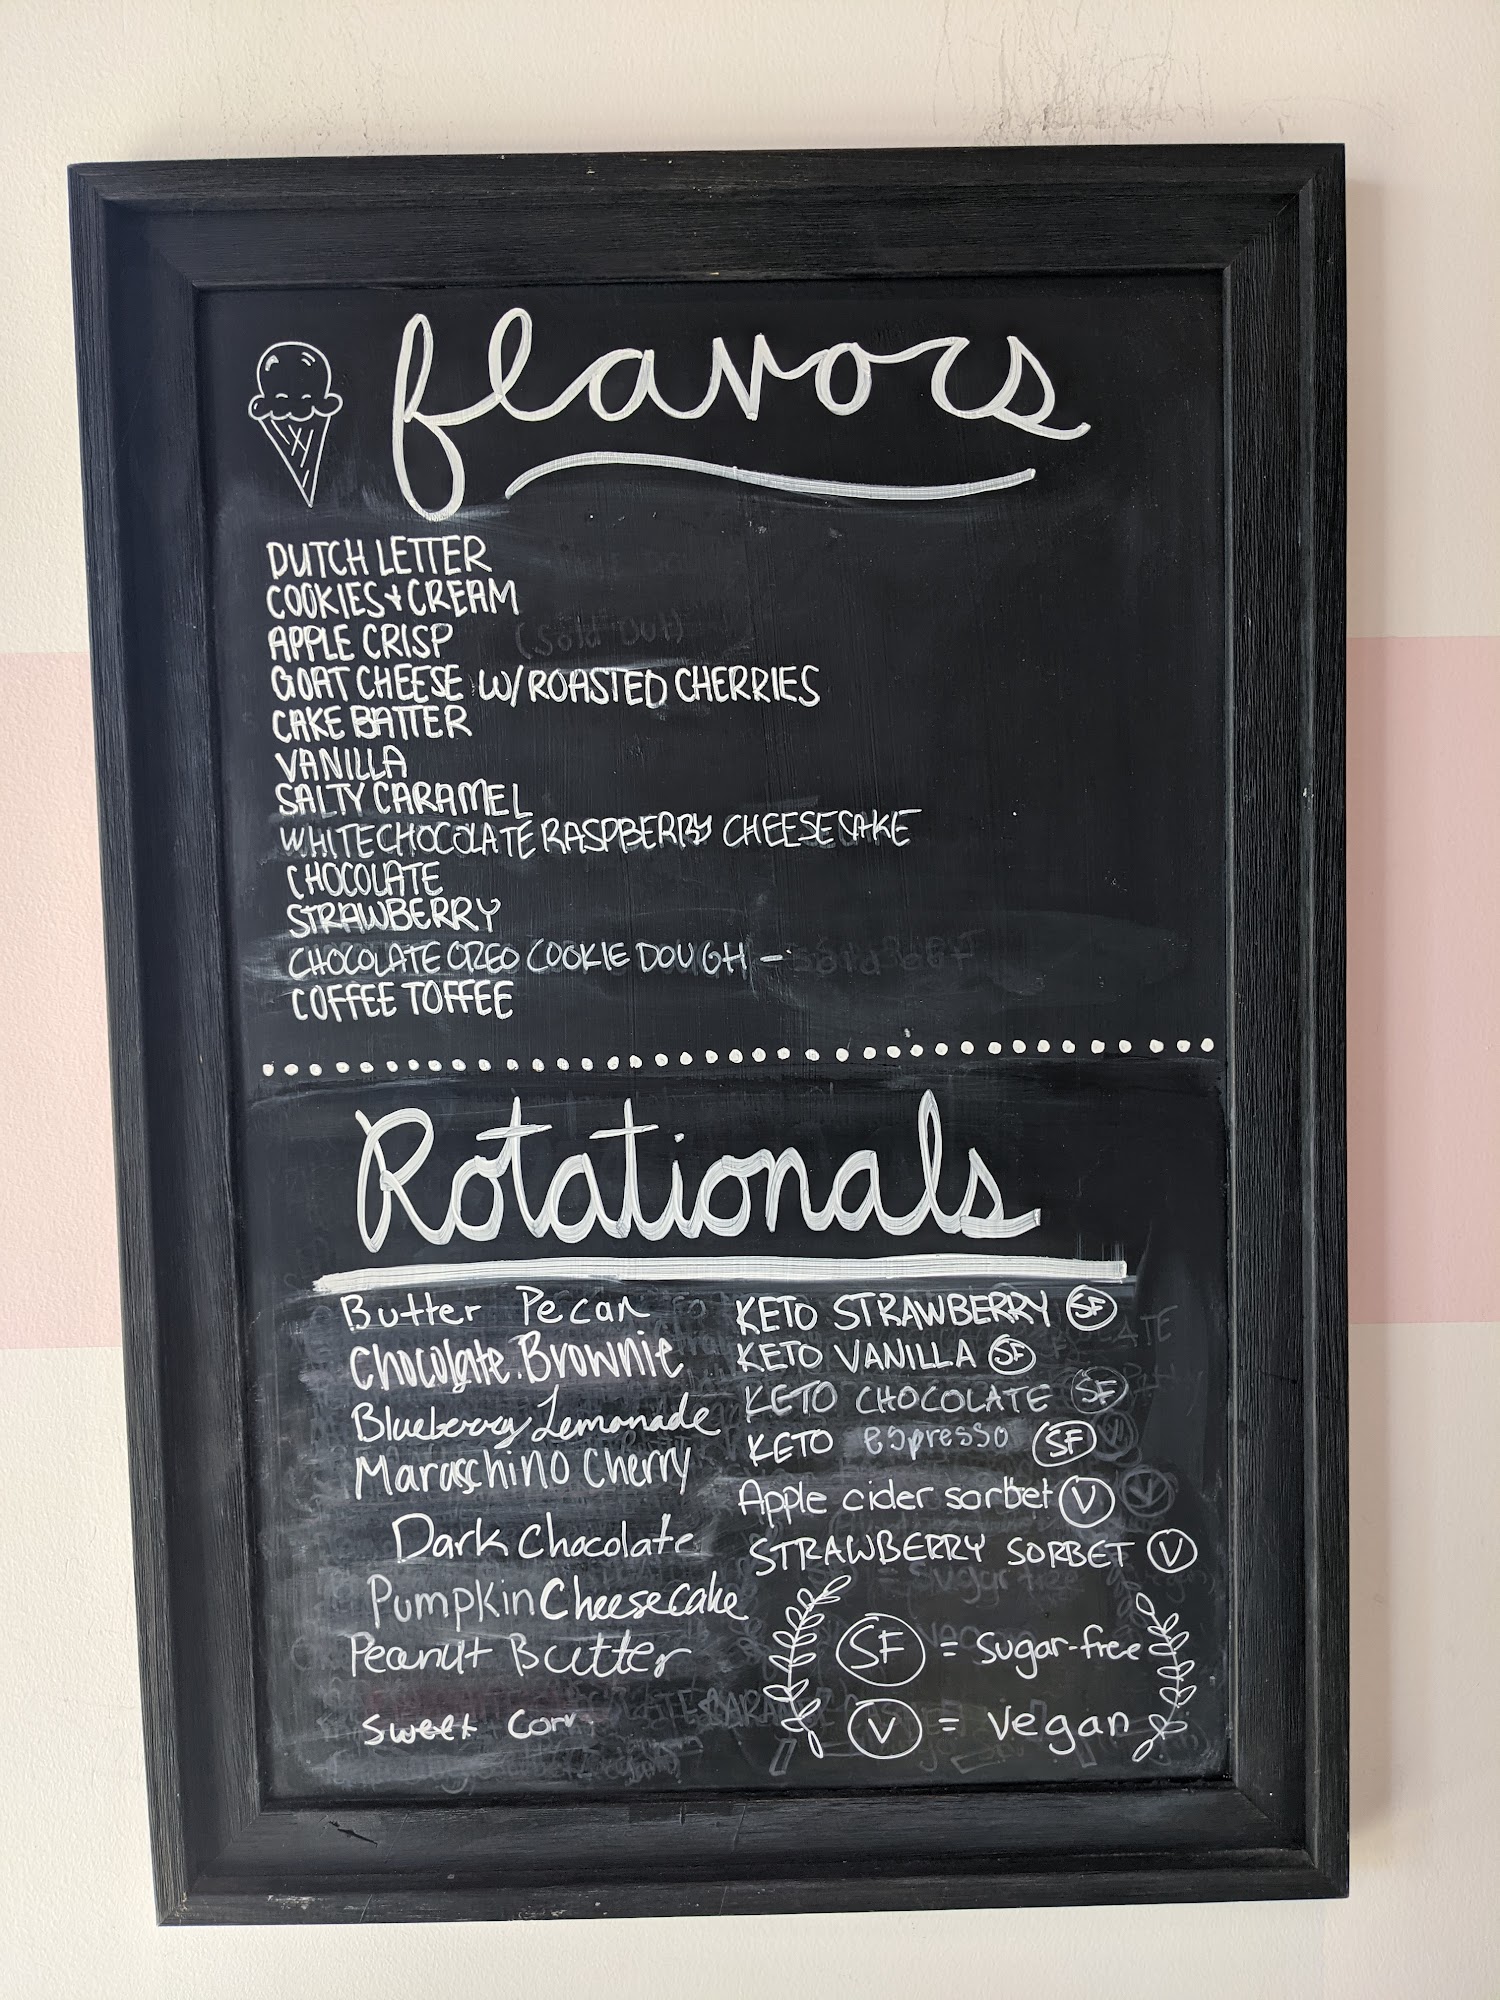 flavors
DUTCH LETTER
COOKIES + CREAM
APPLE CRISP (Sold Out)
GOAT CHEESE W/ ROASTED CHERRIES
CAKE BATTER
VANILLA
SALTY CARAMEL
WHITE CHOCOLATE RASPBERRY CHEESECAKE
CHOCOLATE
STRAWBERRY
CHOCOLATE OREO COOKIE DOUGH -
COFFEE TOFFEE
Rotationals
Butter Pecan
Chocolate Brownie
Blueberry Lemonade
Maraschino Cherry
Dark Chocolate
Pumpkin Cheesecake
Peanut Butter
Sweet Corn
KETO STRAWBERRY SF
KETO VANILLA SF
KETO CHOCOLATE SF
KETO espresso SF
Apple cider sorbet V
STRAWBERRY SORBET V
SF = Sugar-free
V = Vegan